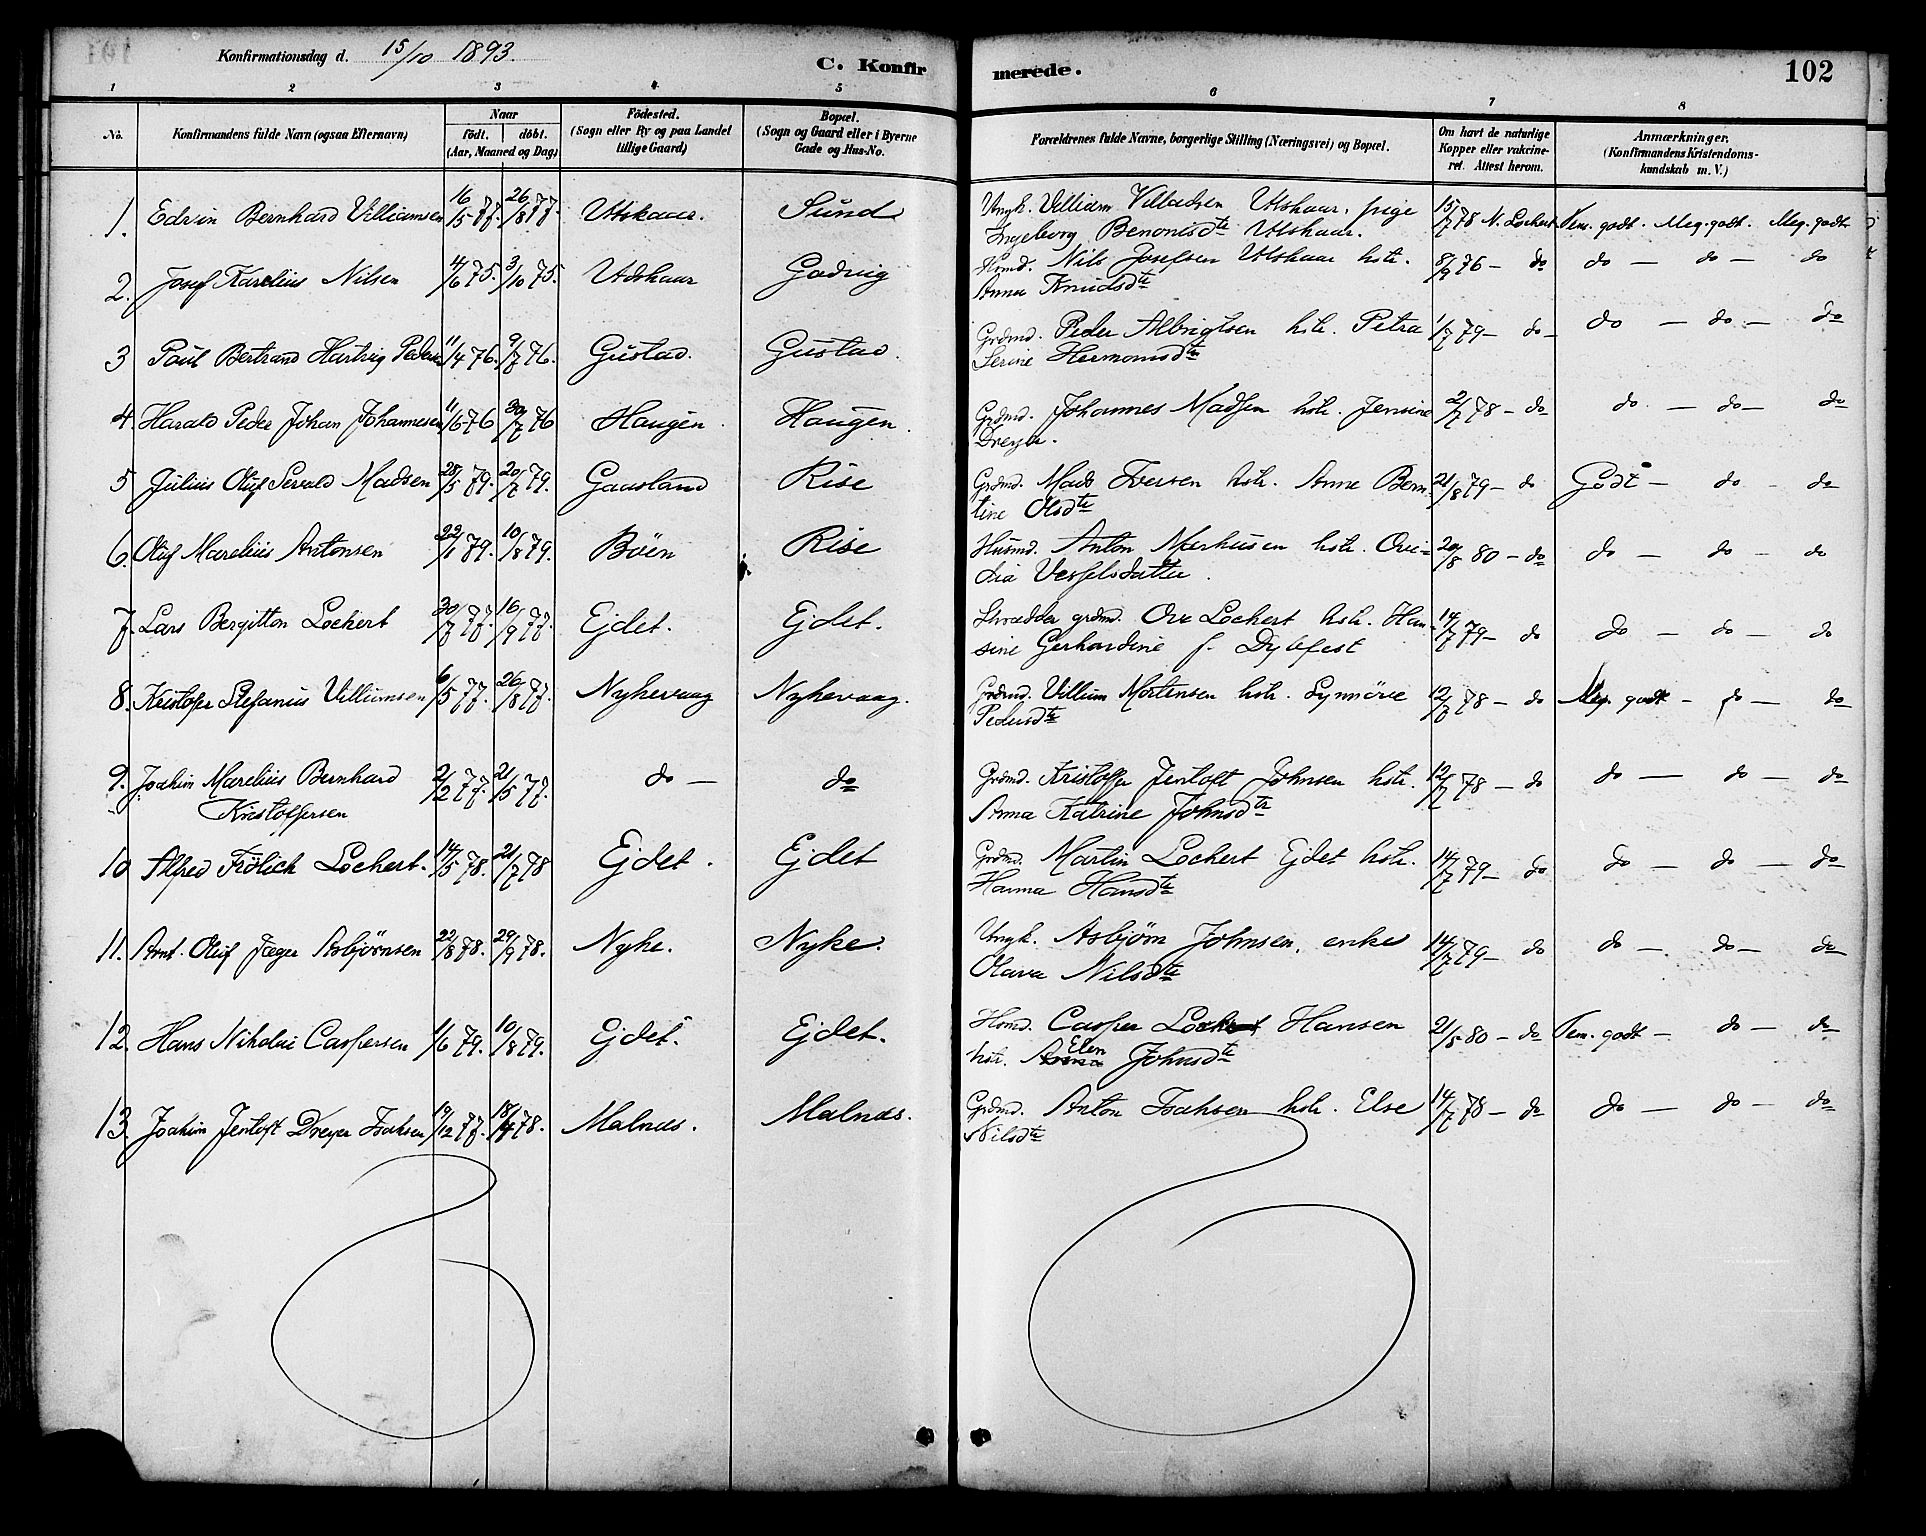 Konfirmationsdag d. 15/10 1893.
C. Konfirmerede.
102
1 2 3 4 5 6 7 8
No.
Konfirmandens fulde Navn (ogsaa Efternavn)
Naar
födt. döbt.
(Aar, Maaned og Dag)
Födested.
(Sogn eller By og paa Landet
tillige Gaard)
Bopæl.
(Sogn og Gaard eller i Byerne
Gade og Hus-No.
Forældrenes fulde Navne, borgerlige Stilling (Næringsvei) og Bopæl.
Om havt de naturlige
Kopper eller vakcine-
ret. Attest herom.
Anmærkninger.
(Konfirmandens Kristendoms-
kundskab m. V.)
1. Edvin Bernhard Villiumsen 16/5 77. 26/8 77. Utskaar. Sund Ungk. Villiam Villadsen Utskaar, pige 15/7 78 N. Lockert Tem. godt. Meg. godt. Meg. godt
Ingeborg Benonisdtr Utskaar.
2. Josef Karelius Nilsen 4/6 75. 3/10 75. Utskaar Gadvig Husmd. Nils Josefsen Utskaar hstr. 8/9 76 - do do - do - do
Anna Knudsdtr
3 Paul Bertrand Hartvig Peders 11/4 76. 9/7 76. Gustad. Gustad. Grdmd. Peder Albrigtsen hstr. Petra 1/7 79 - do - do - do - do
Serine Hermansdtr
4. Harald Peder Johan Johannesen 11/6 76 30/7 76 Haugen. Haugen. Grdmd. Johannes Madsen hstr. Jensine 2/7 78 - do do. - do - do
Dreyer.
5 Julius Oluf Sevald Madsen 28/5 79. 20/7 79. Gaasland Rise Grdmd. Mads Iversen hstr. Anne Bern- 21/8 79 - do Godt - do - do
tine Olsdtr
6. Oluf Marelius Antonsen 22/1 79. 10/8 79. Böen Rise Husmd. Anton Markusen hstr. Ove- 20/8 80 - do do - do - do
dia Vesselsdatter.
7. Lars Bergitton Lockert 30/7 77. 16/9 77. Ejdet. Ejdet. Skrædder grdmd. Ove Lockert hstr. Han- 14/7 79 - do do - do - do
sine Gerhardine f. Dybfest
8. Kristofer Stefanus Villiumsen 6/5 77. 26/8 77. Nykevaag Nykevaag. Grdmd. Villium Mortensen hstr. Synnöve 12/7 78 - do Meg. godt - do - do
Pedersdtr
9. Joakim Marelius Bernhard 2/2 77. 21/5 77. do - do Grdmd. Kristoffer Jentoft Johnsen hstr. 12/7 78 - do do - do - do
Kristoffersen Anna Katrine Johnsdtr
10 Alfred Frölich Lockert. 14/5 78. 21/7 78 Ejdet. Ejdet Grdmd. Martin Lockert Ejdet hstr. 14/7 79 - do do - do - do
Hanna Hansdtr
11. Arnt Oluf Jæger Asbjörnsen 22/8 78. 29/9 78. Nyke. Nyke. Ungk. Asbjörn Johnsen, enke 14/7 79 - do do - do - do
Olava Nilsdtr
12. Hans Nikolai Caspersen 1/6 79. 10/8 79. Ejdet. Ejdet. Husmd. Casper Lockert Hansen 21/5 80 - do Tem. godt - do - do
hstr. Anna Elen Johnsdtr
13. Joakim Jentoft Dreyer Isaksen 19/12 77. 18/4 78. Malnæs. Malnæs. Grdmd. Anton Isaksen hstr. Else 14/7 78 - do do - do - do
Nilsdtr